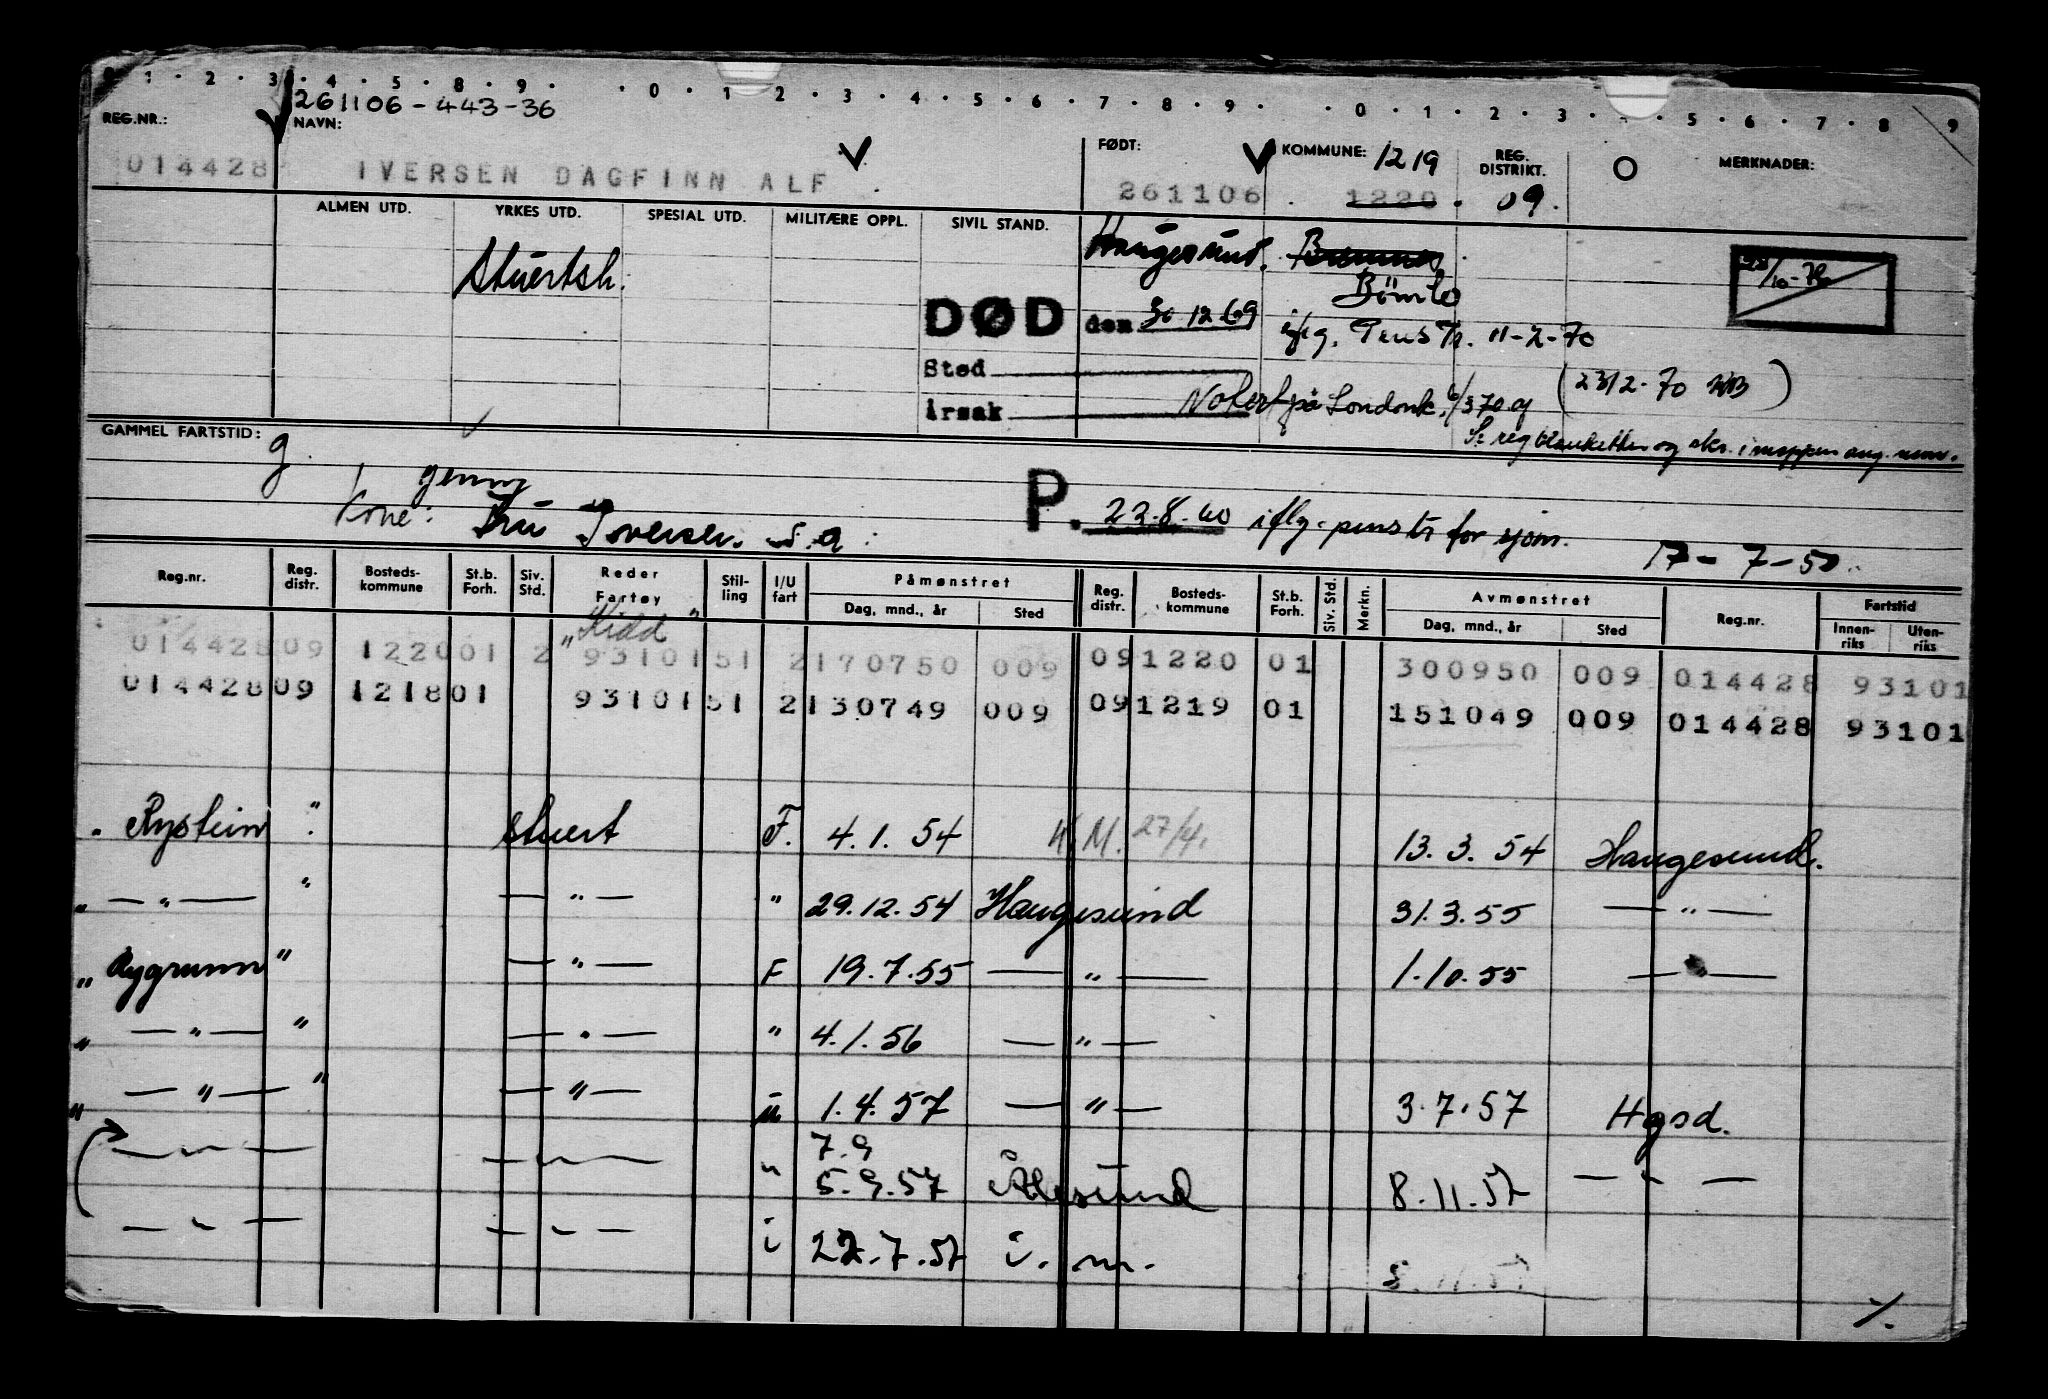 1 · 2 · 3 · 4 · 5 · 8 · 9 · · 0 · 1 2 · 3 · 4 · 5 · 6 · 7 · 8 · 9 · · 0 · 1 · 2 · 3 · · 5 · 6 · 7 · 8 9
261106-443-36
REG.NR.: NAVN: FØDT: KOMMUNE: 1219 REG. DISTRIKT. O MERKNADER:
014428 IVERSEN DAGFINN ALF 261106 1220 09.
ALMEN UTD. YRKES UTD. SPESIAL UTD. MILITÆRE OPPL. SIVIL STAND.
Stuertsk. Haugesund. Bremnes
Bömlo
DØD den 30 12 69 iflg. Penstr. 11-2-70
Sted
Årsak Notert på Londonk. 6/3 70 (23/2-70)
GAMMEL FARTSTID: g.
Kone: Fru Iversen s.a.
P. 22.8.60 iflg. penstr for sjøm. 17-7-50.
Reg.nr. Reg. distr. Bosteds-kommune St.b. Forh. Siv. Std. Reder Fartøy Stil-ling I/U fart Påmønstret Dag, mnd., år Sted Reg. distr. Bosteds-kommune St.b. Forh. Siv. Std. Merkn. Avmønstret Dag, mnd., år Sted Reg.nr. Fartstid Innen-riks Uten-riks
"Kidd"
014428 09 1220 01 2 93101 51 2 170750 009 09 1220 01 300950 009 014428 93101
014428 09 1218 01 93101 51 2 130749 009 09 1219 01 151049 009 014428 93101
. Rystein " stuert F. 4.1.54 M. 27/4. 13.3.54 Haugesund.
" — " — " — " — " 29.12.54 Haugesund 31.3.55 — " —
" Rygrunn " — " — F 19.7.55 — " — 1.10.55 — " —
" — " — " — " — " 4.1.56 — " —
" — " — " — " — u 1.4.57 — " — 3.7.57 Hgsd.
7.9
— " — — " — " 5.9.57 Ålesund 8.11.57 — " —
— " — — " — i 22.7.57 i. m. 5.11.57